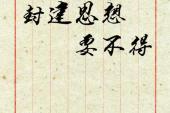 封建思想
要不得